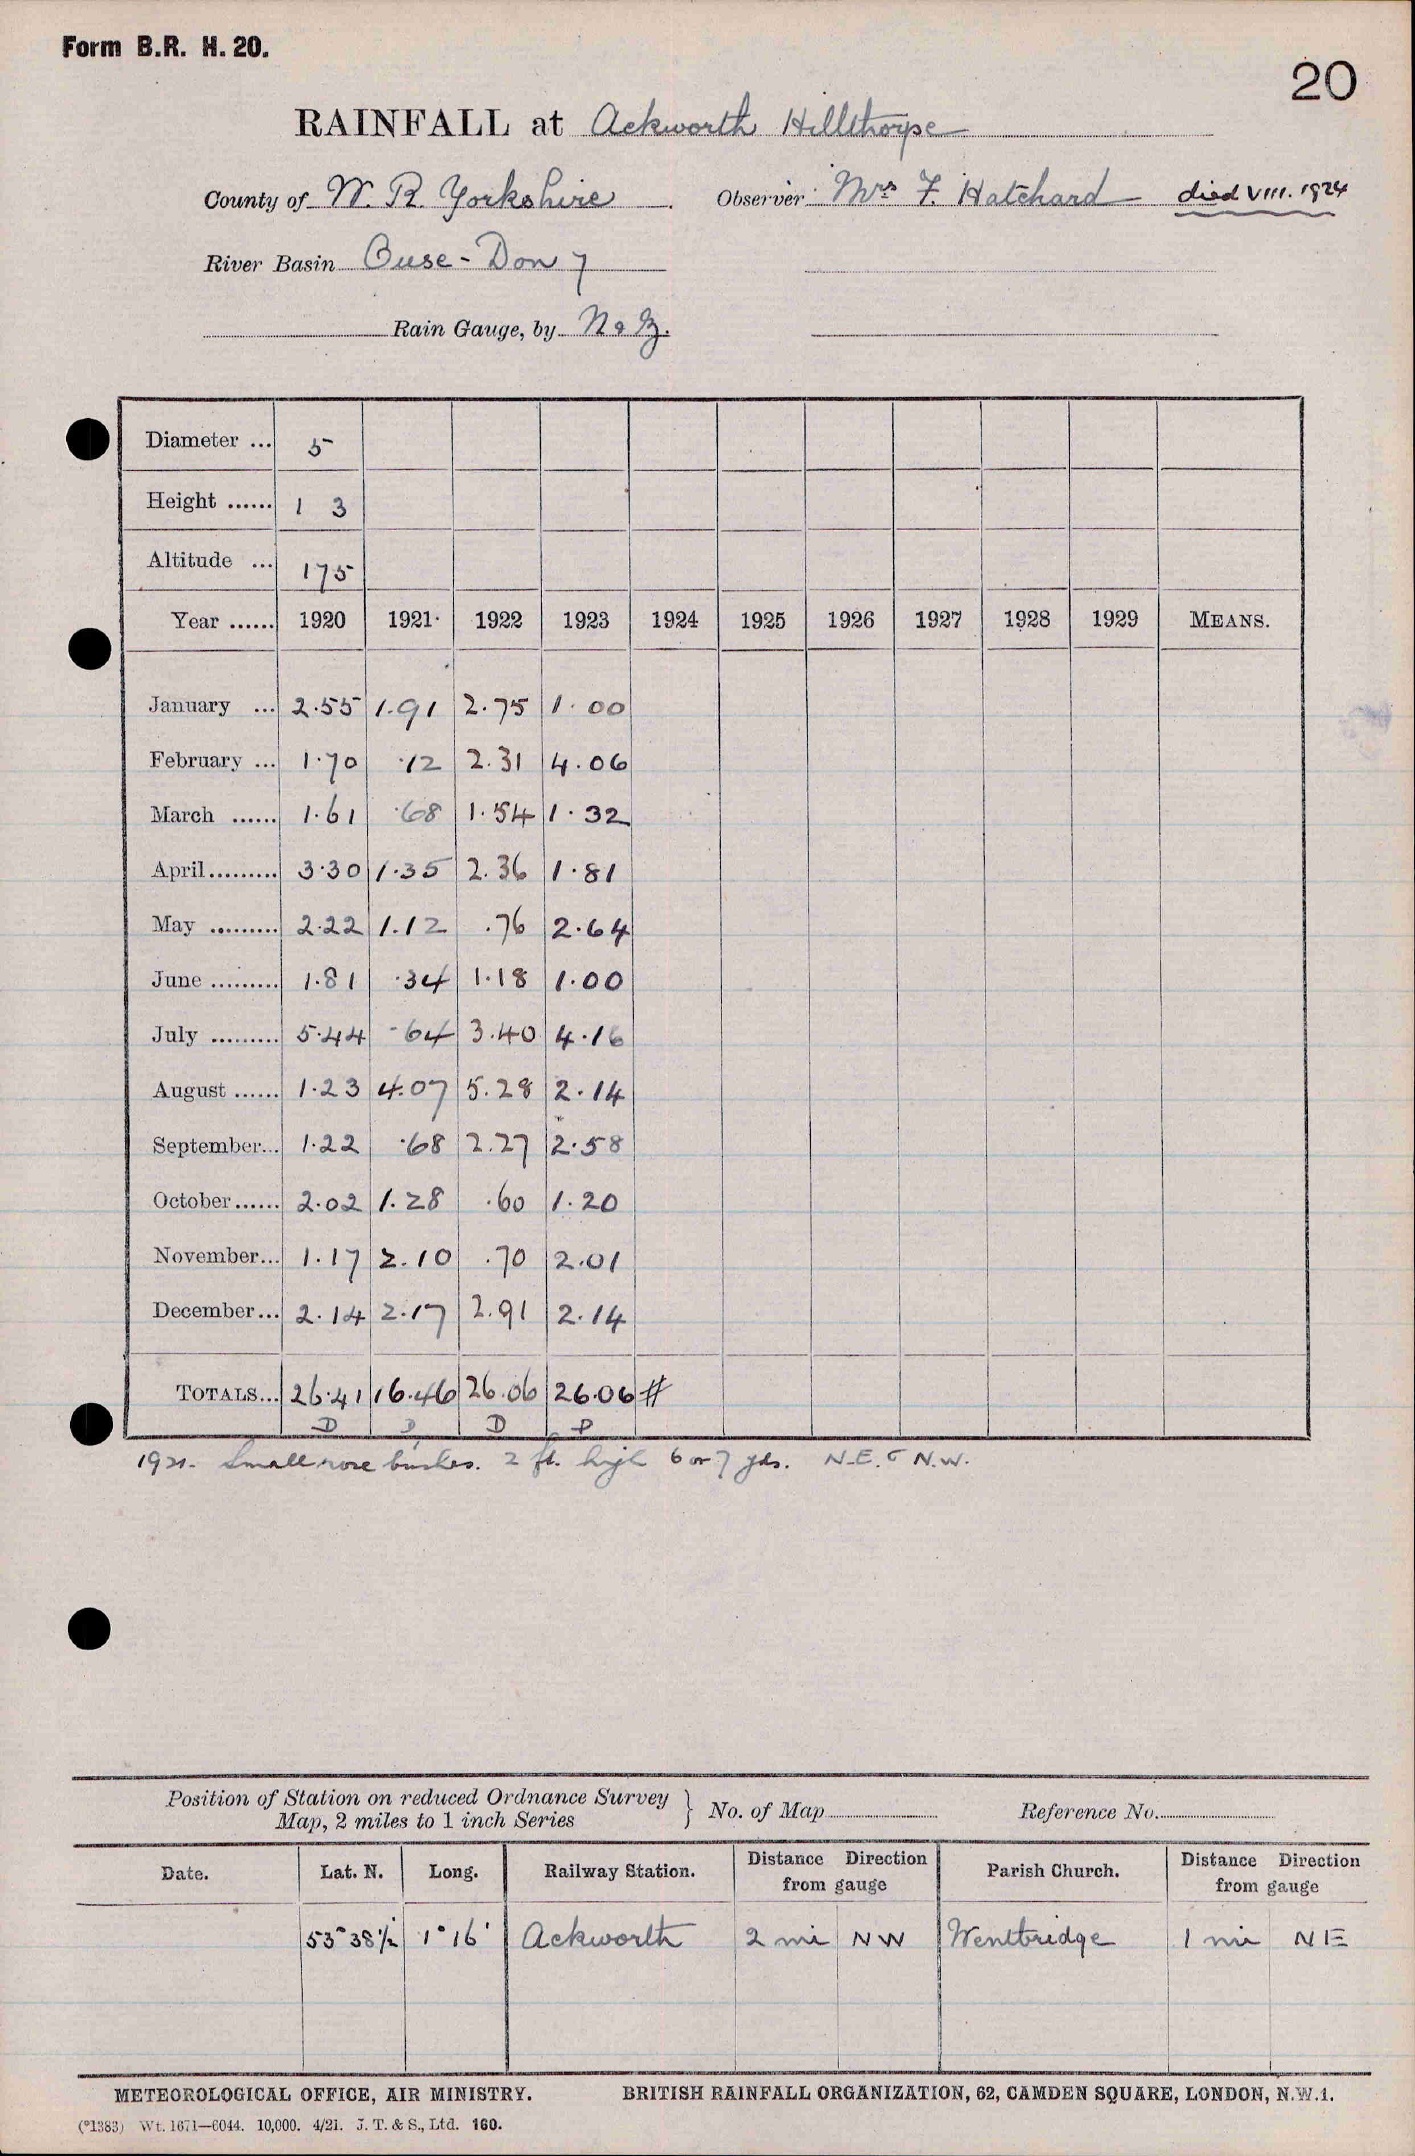 Form B.R. H. 20.
20
RAINFALL at Ackworth Hillthorpe
County of W. R. Yorkshire Observer Mrs F. Hatchard died VIII. 1924
River Basin Ouse - Don 7
Rain Gauge, by N & Z.
Diameter ... 5
Height ...... 1 3
Altitude ... 175
Year ...... 1920 1921 1922 1923 1924 1925 1926 1927 1928 1929 MEANS.
January ... 2.55 1.91 2.75 1.00
February ... 1.70 .12 2.31 4.06
March ...... 1.61 .68 1.54 1.32
April......... 3.30 1.35 2.36 1.81
May ......... 2.22 1.12 .76 2.64
June ......... 1.81 .34 1.18 1.00
July ......... 5.44 .64 3.40 4.16
August ...... 1.23 4.07 5.28 2.14
September... 1.22 .68 2.27 2.58
October...... 2.02 1.28 .60 1.20
November... 1.17 2.10 .70 2.01
December... 2.14 2.17 2.91 2.14
TOTALS... 26.41 16.46 26.06 26.06 #
D D D P
1921. Small rose bushes. 2 ft. high 6 or 7 yds. N.E. & N.W.
Position of Station on reduced Ordnance Survey
Map, 2 miles to 1 inch Series } No. of Map Reference No.
Date. Lat. N. Long. Railway Station. Distance Direction from gauge Parish Church. Distance Direction from gauge
53° 38½' 1° 16' Ackworth 2 mi NW Wentbridge 1 mi NE
METEOROLOGICAL OFFICE, AIR MINISTRY. BRITISH RAINFALL ORGANIZATION, 62, CAMDEN SQUARE, LONDON, N.W.1.
(*1383) Wt. 1671—6044. 10,000. 4/21. J. T. & S., Ltd. 160.